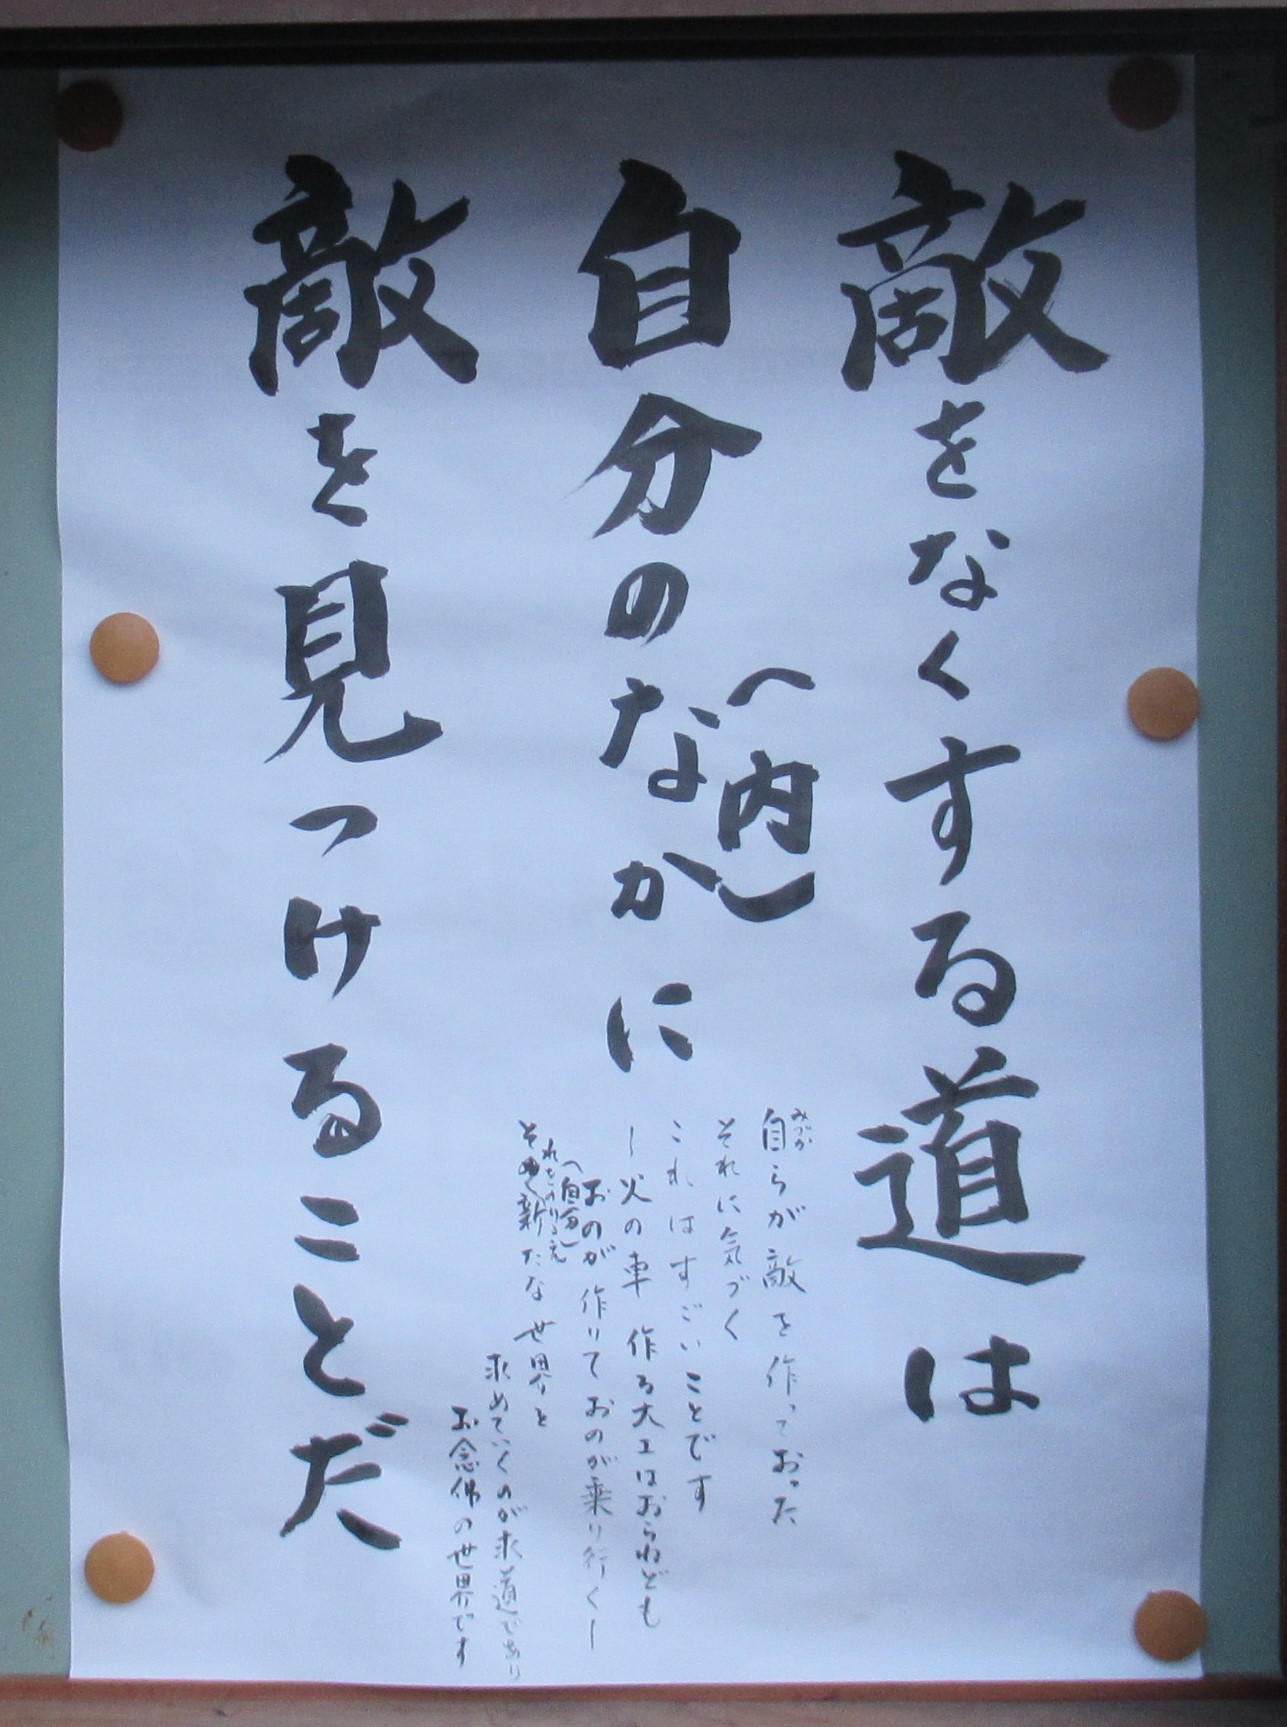 敵をなくする道は
自分のなかに
（内）
敵を見つけることだ
自らが敵を作っておった
みづか
それに気づく
これはすごいことです
ー火の車 作る大工はおらねども
おのが作りておのが乗り行くー
（自分）
それをのりこえ
その新たな世界を
求めていくのが求道であり
お念佛の世界です